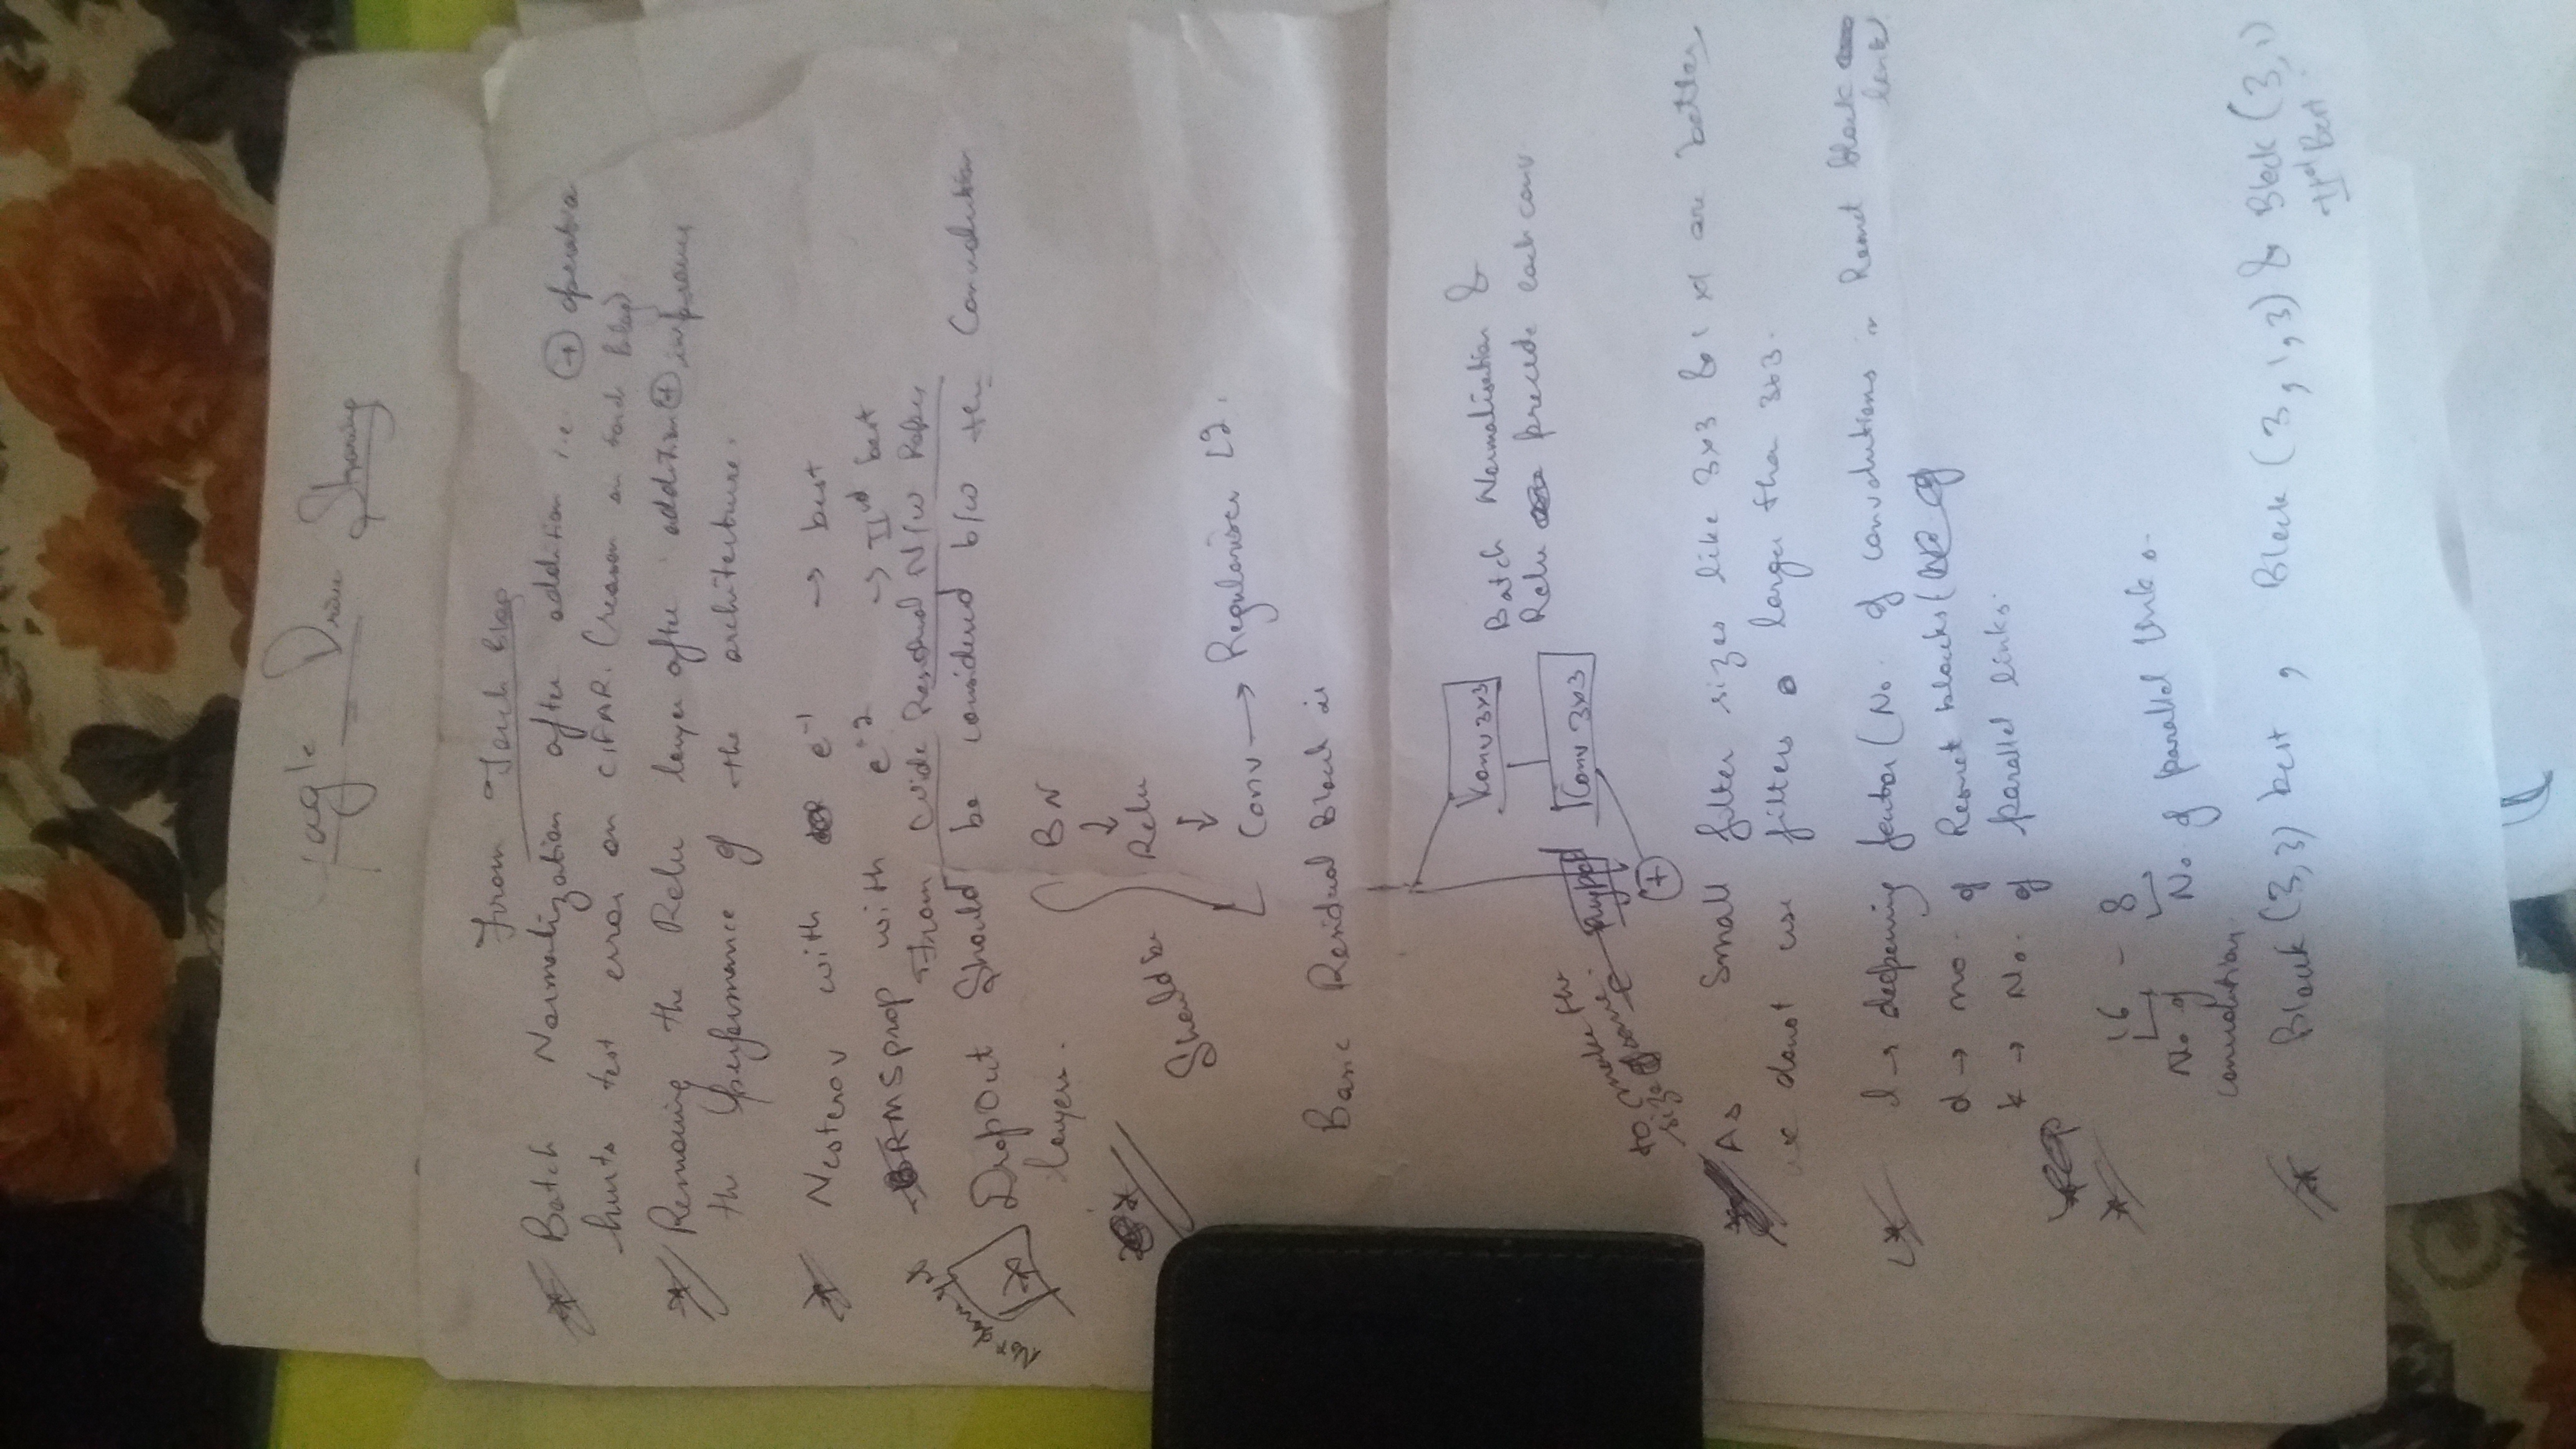 From Torch Blog
* Batch Normalization after addition i.e (+) operation
hurts test error on CIFAR. (reason on torch blog)
* Removing the Relu layer after addition (+) improves
the performance of the architecture.
* Nesterov with e^-1 → best
RMSprop with e^-2 → IInd best
From Wide Residual N/w Paper
Not done yet
* DropOut Should be considered b/w the Convolution
layers.
Should be
BN
↓
Relu
↓
Conv → Regulariser L2.
Basic Residual Block is
Conv 3x3
Batch Normalisation &
Relu precede each conv
Conv 3x3
to make the
size same
+
* As Small filter sizes like 3x3 & 1x1 are better
we donot use filters larger than 3x3.
* l → deepening factor (No. of convolutions in Resnet block
d → no. of Resnet blocks (
k → No. of parallel links.
* 16 - 8
No of No of parallel links.
convolutions
* Block (3,3) best, Block (3,1,3) & Block (3,1)
IInd Best.